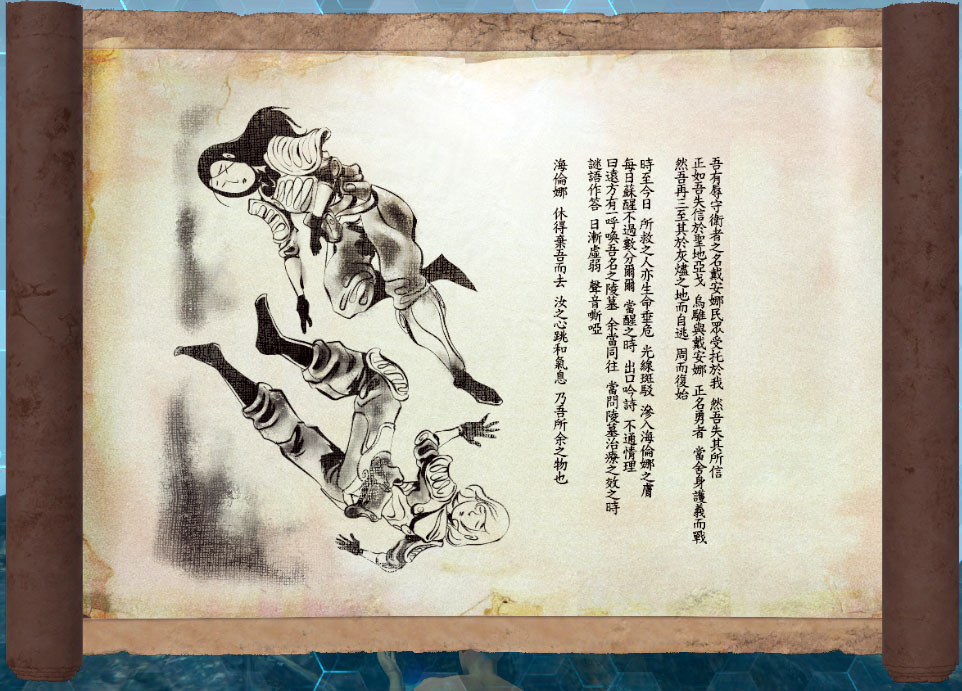 吾有辱守衛者之名戴安娜民眾受托於我 然吾失其所信
正如吾失信於聖地亞戈 烏騅與戴安娜 正名勇者 當舍身護義而戰
然吾再三至其於灰燼之地而自逃 周而復始
時至今日 所救之人亦生命垂危 光線斑駁 滲入海倫娜之膚
每日蘇醒不過數分爾爾 當醒之時 出口吟詩 不通情理
曰遠方有一呼喚吾名之陵墓 余當同往 當問陵墓治療之效之時
謎語作答 日漸虛弱 聲音嘶啞
海倫娜 休得棄吾而去 汝之心跳和氣息 乃吾所余之物也